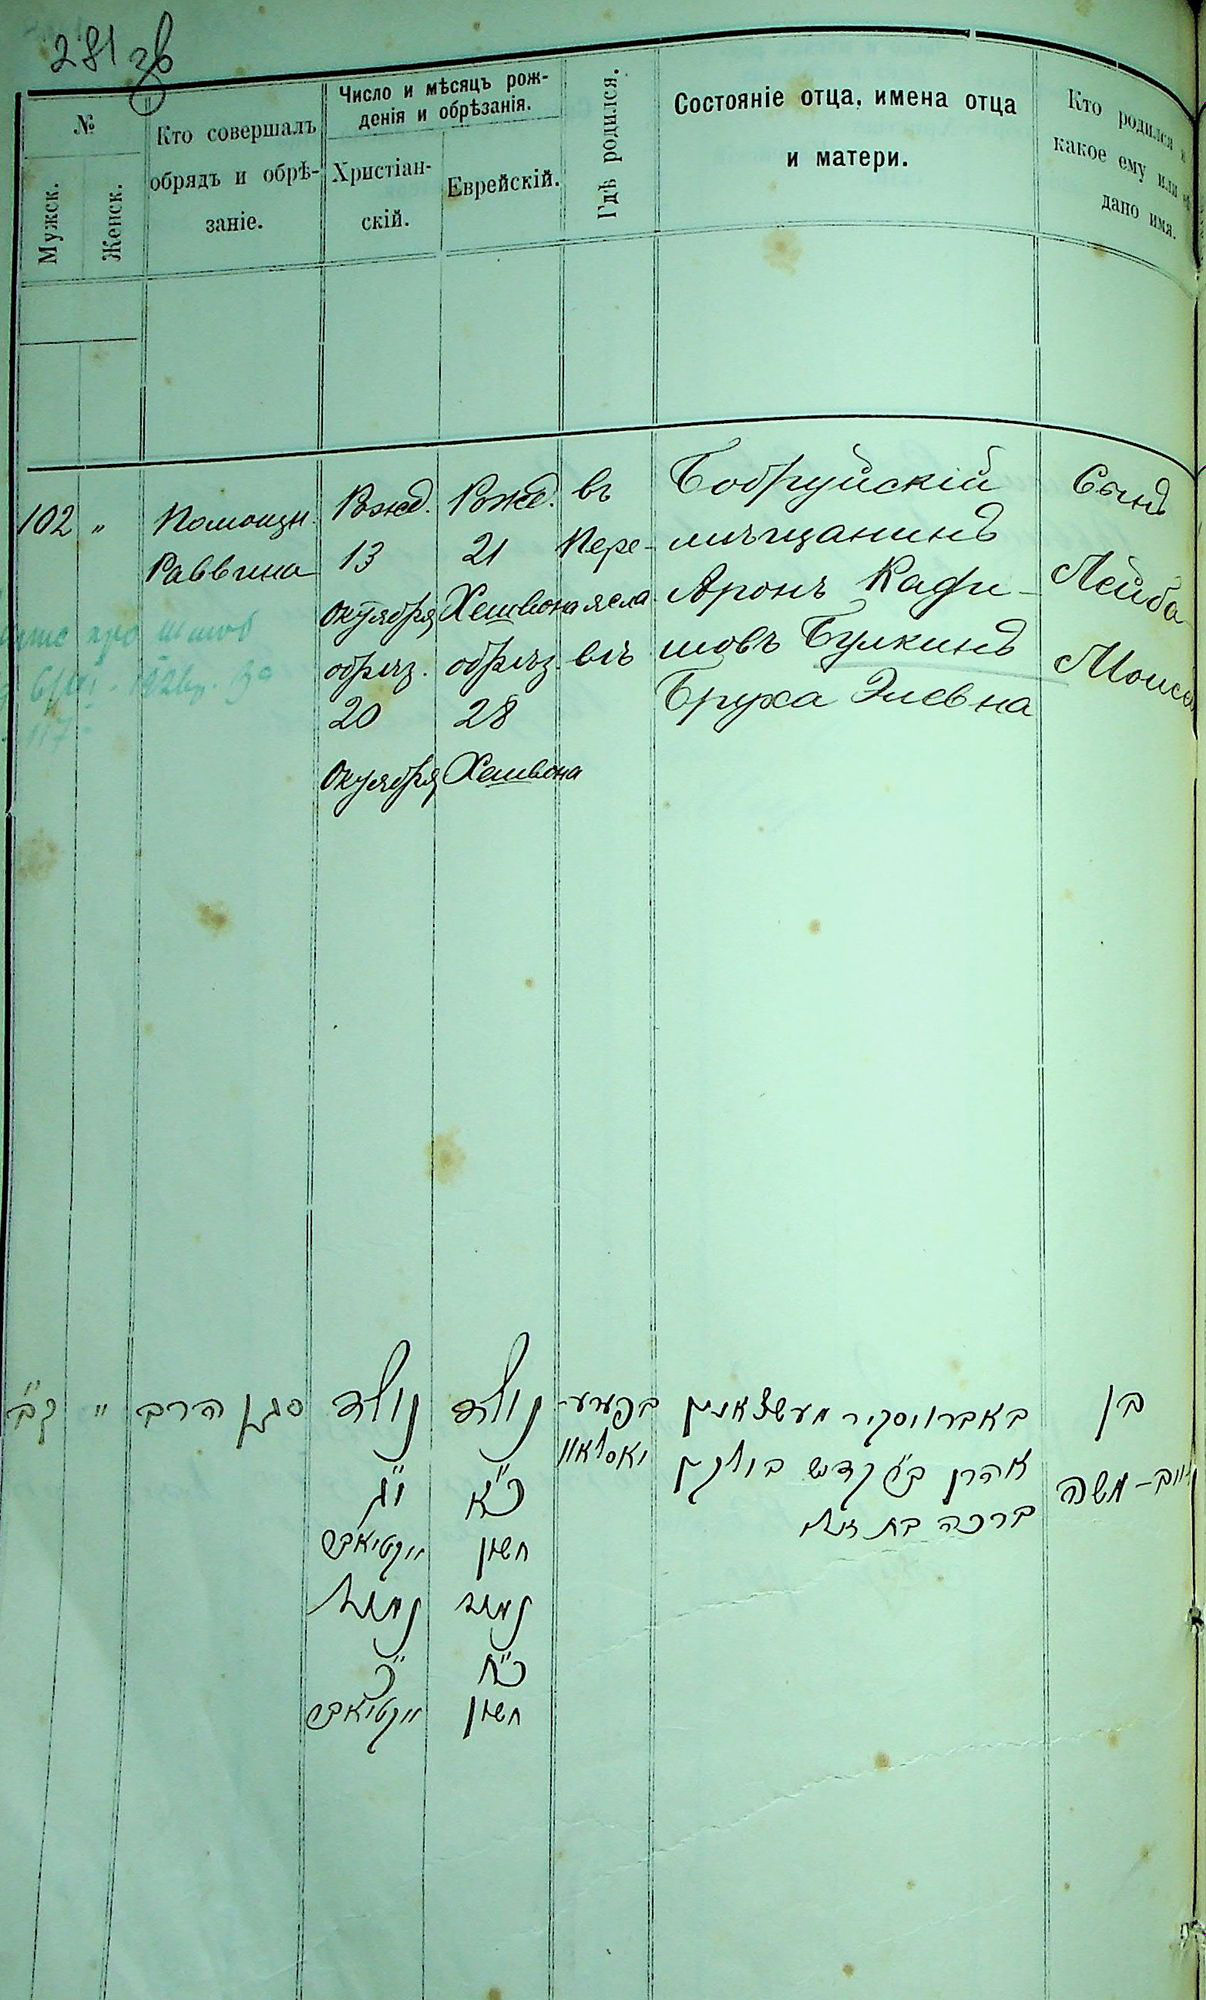 281 зв
№
Мужск.
Женск.
Кто совершалъ
обрядъ и обрѣ-
заніе.
Число и мѣсяцъ рож-
денія и обрѣзанія.
Христіан-
скій.
Еврейскій.
Гдѣ родился.
Состояніе отца, имена отца
и матери.
Кто родился и
какое ему или
дано имя.
102 "
Помощн.
Раввина
Рожд.
13
Октября
обрѣз.
20
Октября
Рожд.
21
Хешвона
обрѣз
28
Хешвона
въ
Пере-
ясла
влѣ
Бобруйскій
мѣщанинъ
Аронъ
шовъ Булкинъ
Бруха Элевна
Сынъ
Лейба
Моисей
ק"ב
"
סגן הרב
נולד
י"ג
אקטיאבר
נמול
כ'
אקטיאבר
נולד
כ"א
חשון
נמול
כ"ח
חשון
בפערע-
יאסלאוו
באברויסקיר מעשצאנין
אהרן קדיש בולקין
ברכה בת
בן
לייב-משה